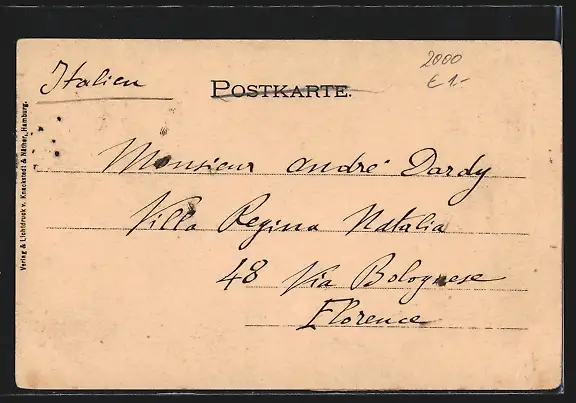 2000
€ 1.-
Italien
POSTKARTE.
Monsieur André Dardy
Villa Regina Natalia
48 Via Bolognese
Florence
Verlag & Lichtdruck v. Knackstedt & Näther, Hamburg.